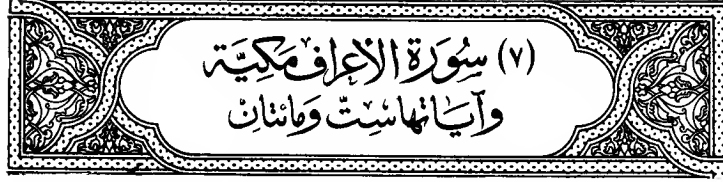 (٧) سُورَة الأعراف مَكيَّة
وآيَاتها سِتّ وَمائتان